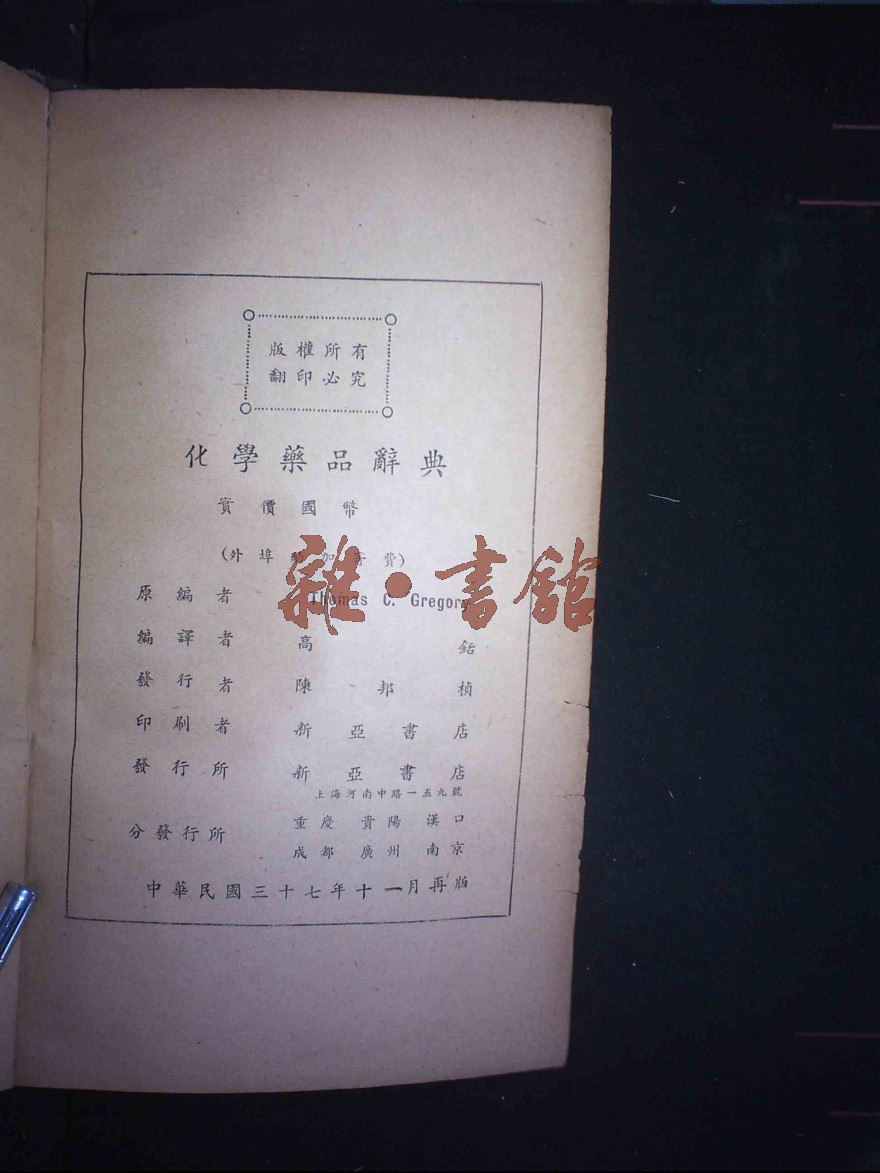 版權所有
翻印必究
化學藥品辭典
實價國幣
(外埠酌加寄費)
原編者 Thomas C. Gregory
編譯者 高銛
發行者 陳邦楨
印刷者 新亞書店
發行所 新亞書店
上海河南中路一五九號
分發行所 重慶 貴陽 漢口
成都 廣州 南京
中華民國三十七年十一月再版
雜·書館